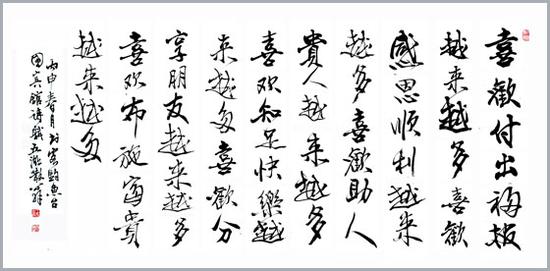 喜歡付出福报
越来越多喜歡
感恩顺利越来
越多喜歡助人
貴人越来越多
喜欢知足快樂越
来越多喜歡分
享朋友越来越多
喜欢布施富貴
越来越多
丙申春月魚台
国宾馆